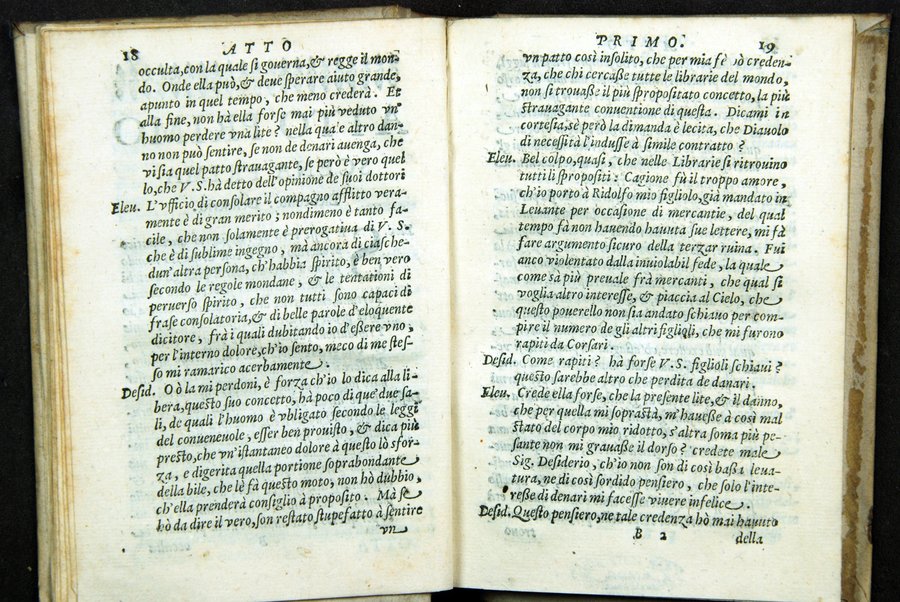 18 ATTO
occulta, con la quale si governa, & regge il mon-
do. Onde ella può, & deve sperare aiuto grande,
apunto in quel tempo, che meno crederà. Et
alla fine, non hà ella forse mai più veduto vn'
huomo perdere vna lite? nella qua'e altro dan-
no non può sentire, se non de denari auenga, che
vi sia quel patto strauagante, se però è vero quel
lo, che V. S. hà detto dell'opinione de suoi dottori
Eleu. L'vfficio, di consolare il compagno afflitto vera-
mente è di gran merito; nondimeno è tanto fa-
cile, che non solamente è prerogatiua di V. S.
che è di sublime ingegno, mà ancora di ciasche-
dun'altra persona, ch'habbia spirito, è ben vero
secondo le regole mondane, & le tentationi di
peruerso spirito, che non tutti sono capaci di
frase consolatoria, & di belle parole d'eloquente
dicitore, frà i quali dubitando io d'eßere vno;
per l'interno dolore, ch'io sento, meco di me stes-
so mi ramarico acerbamente.
Desid. O ò la mi perdoni, è forza ch'io lo dica alla li-
bera, questo suo concetto, hà poco di que' due sa-
li, de quali l'huomo è vbligato secondo le leggi
del conueneuole, esser ben prouisto, & dica più
presto, che vn'istantaneo dolore à questo lò sfor-
za, e digerita quella portione soprabondante
della bile, che lè fà questo moto, non hò dubbio,
ch'ella prenderà consiglio à proposito. Mà se
hò da dire il vero, son restato stupefatto à sentire
vn
PRIMO. 19
vn patto così insolito, che per mia fè hò creden-
za, che chi cercaße tutte le librarie del mondo,
non si trouaße il più spropositato concetto, la più
strauagante conuentione di questa. Dicami in
cortesia, sè però la dimanda è lecita, che Diauolo
di necessità l'indusse à simile contratto?
Eleu. Bel colpo, quasi, che nelle Librarie si ritrouino
tutti li spropositi: Cagione fù il troppo amore,
ch'io porto à Ridolfo mio figliolo, già mandato in
Leuante per occasione di mercantie, del qual
tempo fà non hauendo hauuta sue lettere, mi fà
fare argumento sicuro della terzar ruina. Fui
anco violentato dalla inuiolabil fede, la quale
come sà più preuale frà mercanti, che qual si
voglia altro interesse, & piaccia al Cielo, che
questo pouerello non sia andato schiauo per com-
pire il numero de gli altri figlioli, che mi furono
rapiti da Corsari.
Desid. Come rapiti? hà forse V. S. figlioli schiaui?
questo sarebbe altro che perdita de danari.
Eleu. Crede ella forse, che la presente lite, & il danno,
che per quella mi soprastà, m'haueße à così mal
stato del corpo mio ridotto, s'altra soma più pe-
sante non mi grauaße il dorso? credete male
Sig. Desiderio, ch'io non son di così baßa leua-
tura, ne di così sordido pensiero, che solo l'inte-
reße di denari mi facesse viuere infelice.
Desid. Questo pensiero, ne tale credenza hò mai hauuto
B 2 della